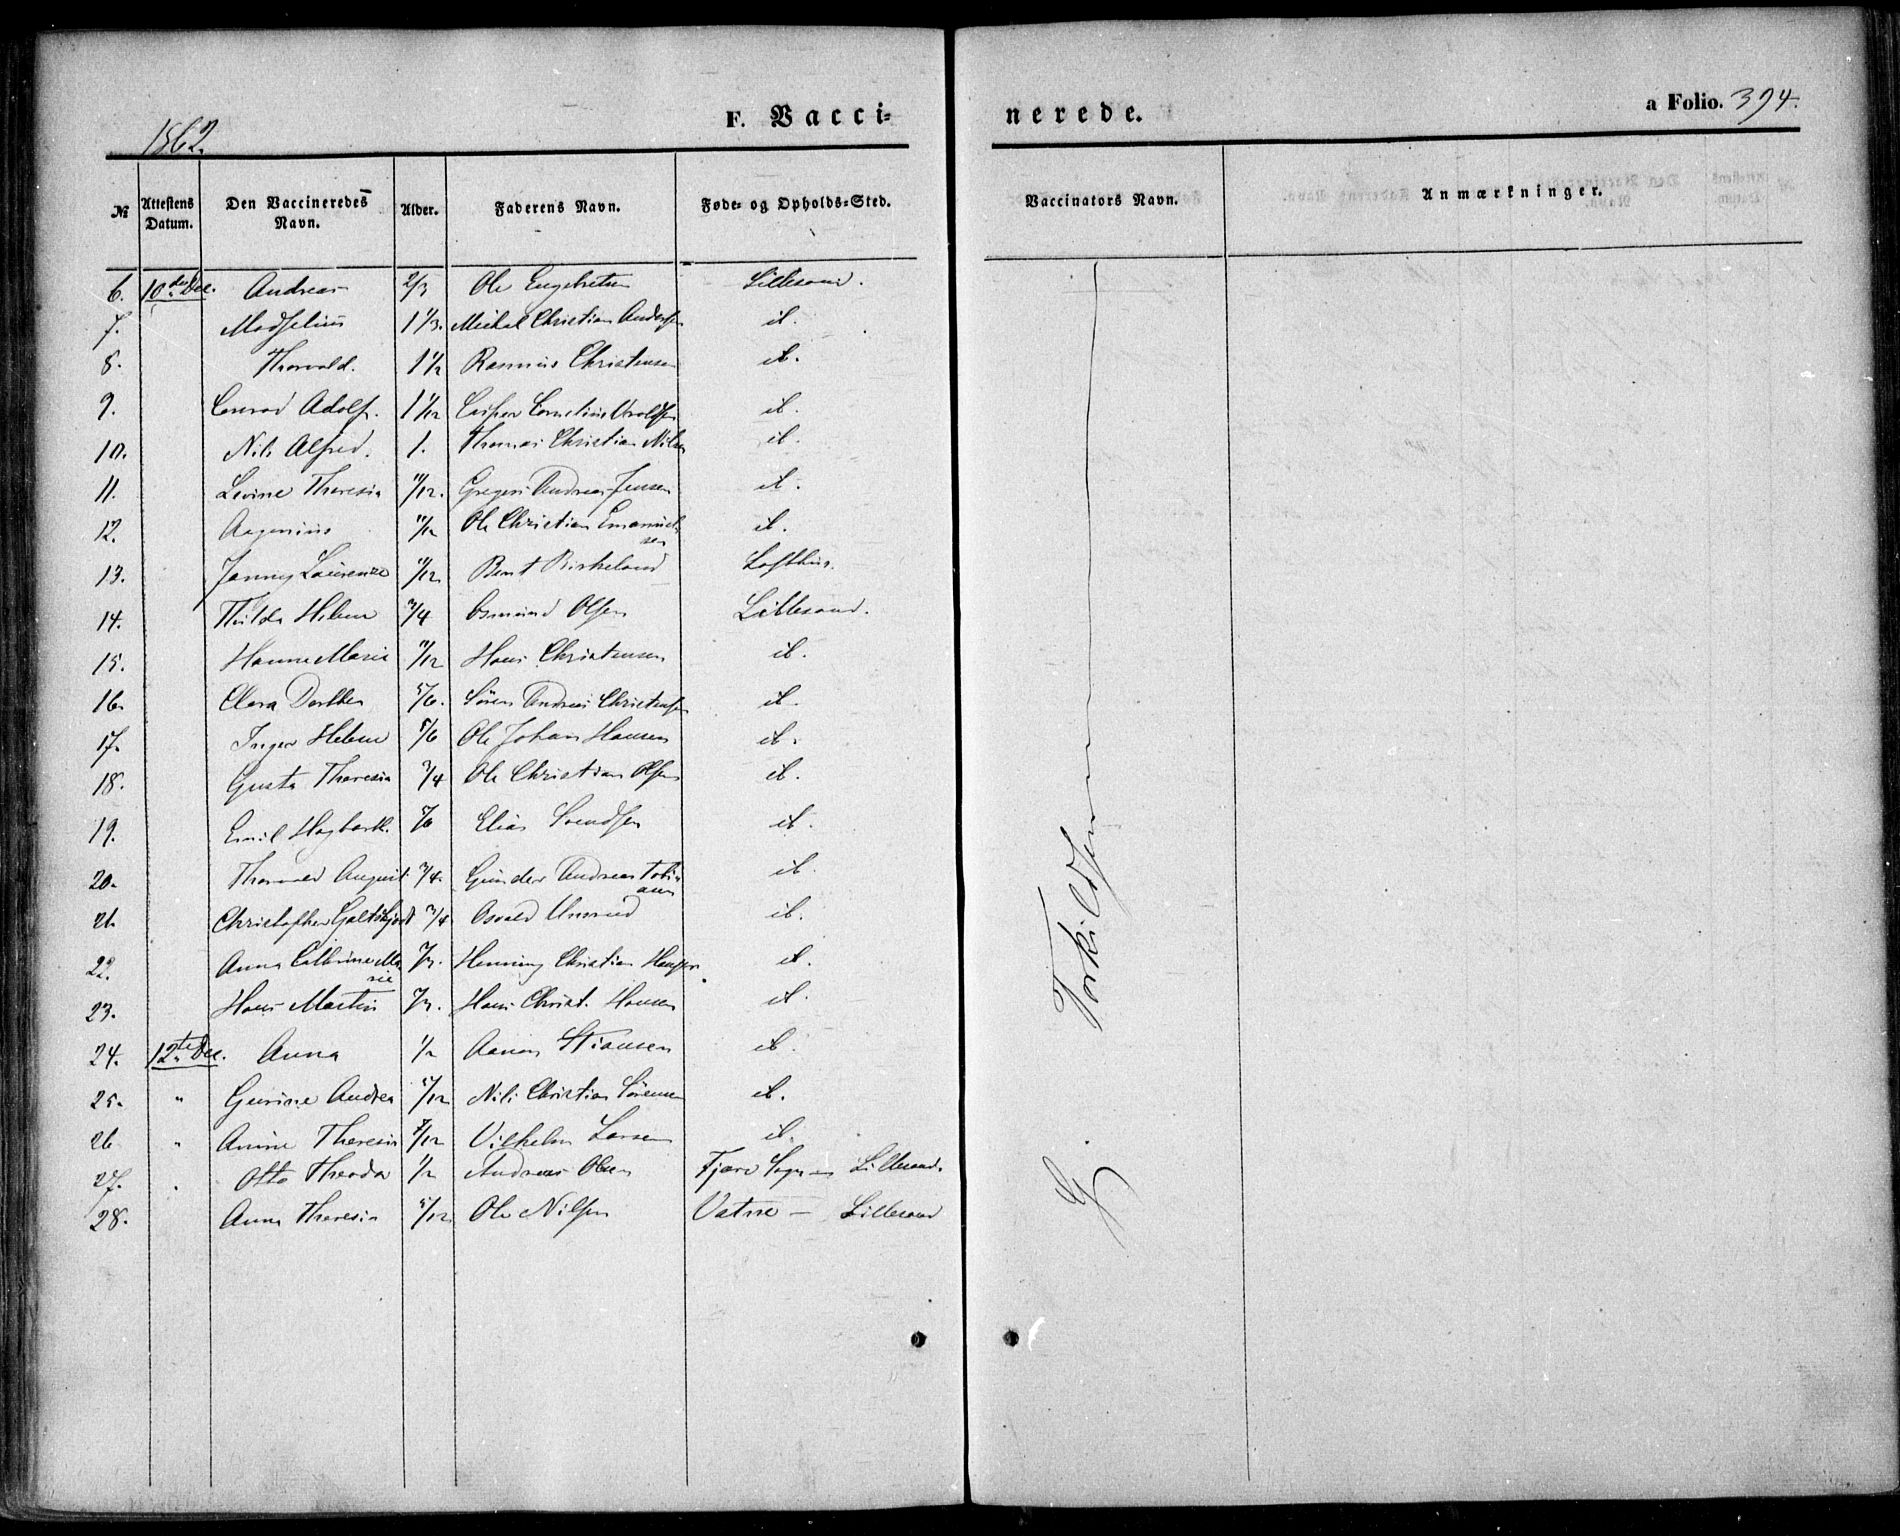 1862.
F. Vacci-
nerede.
a Folio. 394.
№ Attestens Datum. Den Vaccineredes Navn. Alder. Faderens Navn. Føde- og Opholds-Sted. Vaccinators Navn. Anmærkninger.
6. 10de Dec. Andreas 2/3 Ole Engebretsen Lillesand.
7. 1 1/3. Michal Christian Andersen ib.
8. Thorvald. 1 1/2 Rasmus Christensen ib.
9. Conrad Adolf. 1 1/12 Casper Cornelius ib.
10. Nils Alfred. 1. Thomas Christian Nilsen ib.
11. Levine Theresia 11/12. Gregers Andreas Jensen ib.
12. Aagenius 11/12 Ole Christian Emanuel-
sen ib.
13. Janny Laurenze 11/12 Bent Birkeland Lofthus.
14. Thilda Helene 3/4 Osmund Olsen Lillesand.
15. Hanne Marie 11/12 Hans Christensen ib.
16. Clara Dorthea 5/6. Sören Andreas Christensen ib.
17. Inger Helene 5/6 Ole Johan Hansen ib.
18. Gusta Theresia 3/4 Ole Christian Olsen ib.
19. Emil Hagbart. 5/6 Elias Svendsen ib.
20. Thorvald August 3/4. Gunder Andreas Tobi-
asen ib.
21. Christopher 3/4 Osvald ib.
22. Anna Cathrine Ma-
rie Henning Christian Hansen. ib.
23. Hans Martin Hans Christ. Hansen ib.
24. 12te Dec. Anna 1/2 Aanon Stiansen ib.
25. " Gurine Andrea 5/12 Nils Christian Sörensen ib.
26 " Anine Theresia 7/12 Vilhelm Larsen ib.
27. " Otto Theodor 1/2 Andreas Olsen Fjære Sogn — Lillesand.
28. Anna Theresia 5/12 Ole Nilsen Vatne — Lillesand
G. Torkildsen